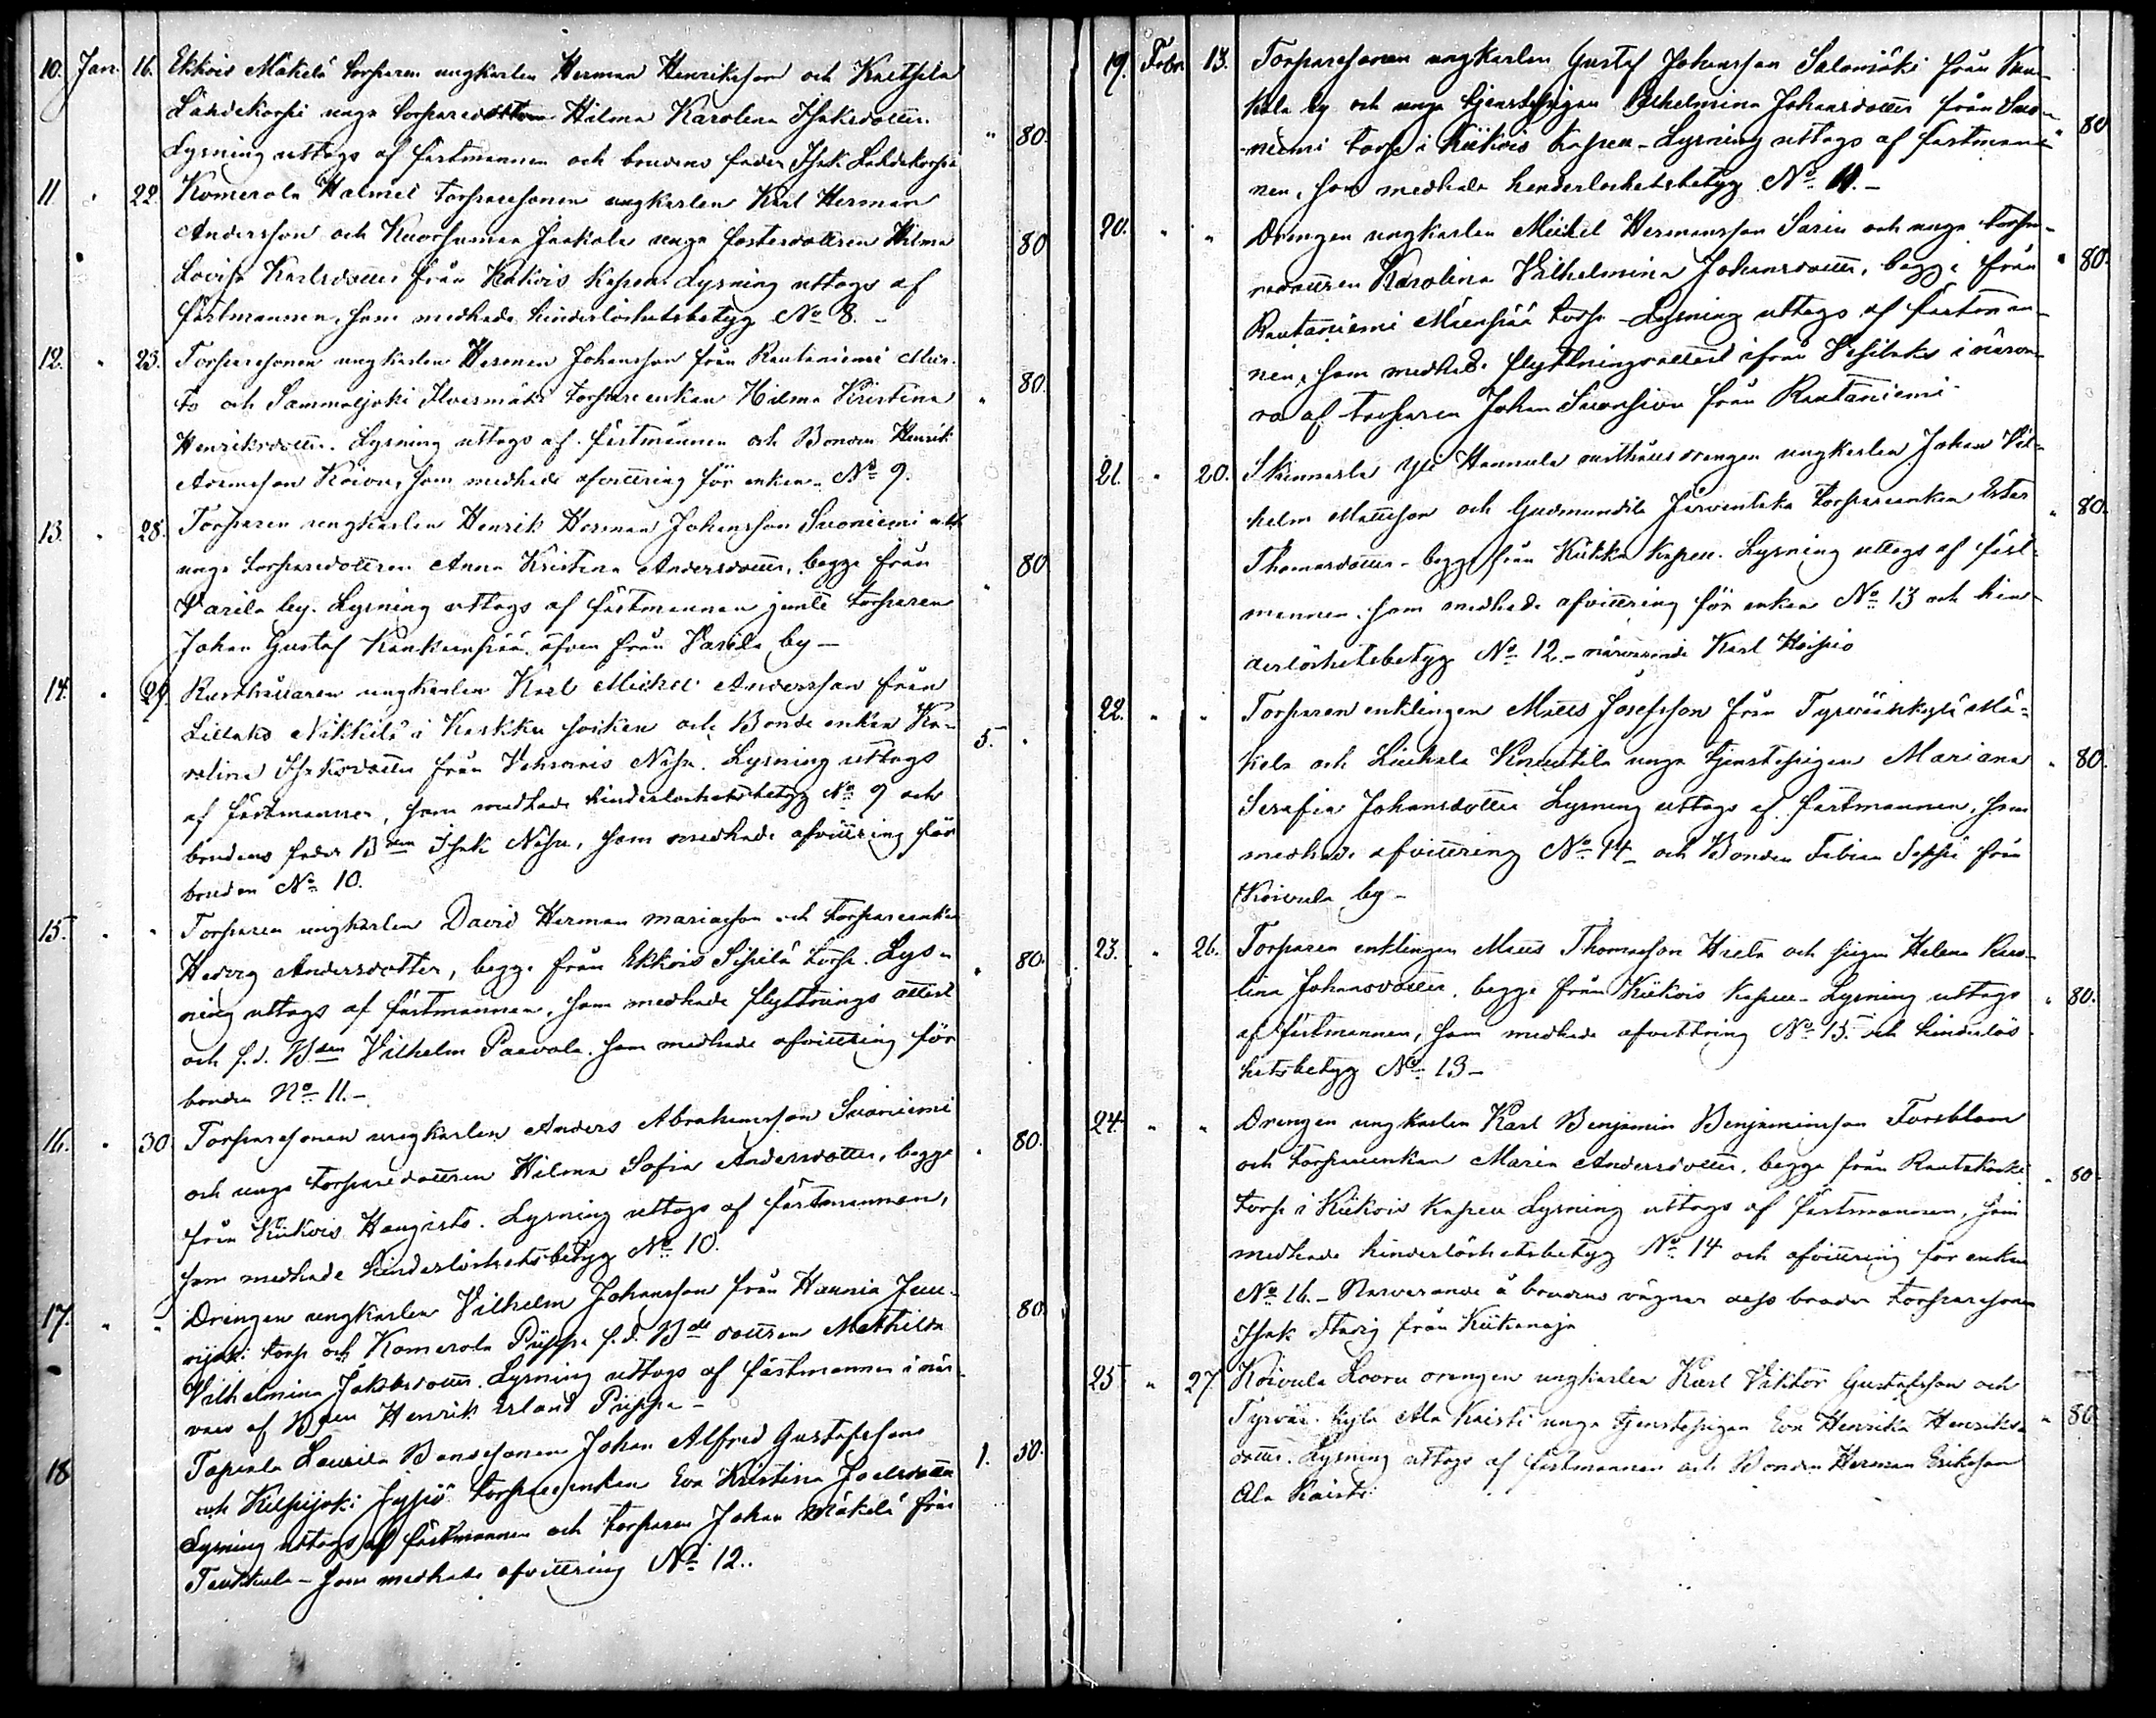 10. Jan. 16. Ekkois Mäkelä torparen ungkarlen Herman Henriksson och
Lahdekorpi unga torparedottren Hilma Karolina Isaksdotter.
Lysning uttogs af fästmannen och brudens fader Isak Lahdekorpi " 80.
11 " 22. Komerola Halmet torparesonen ungkarlen Karl Herman
Andersson och Jaakola unga fosterdottren Hilma
Lovisa Karlsdotter från Kiikois Kapell. Lysning uttogs af 80
fästmannen, som medhade hinderlöshetsbetyg No 8. –
12. " 23. Torparesonen ungkarlen Herman Johansson från Rautaniemi
och Sammaljoki torpareenkan Hilma Kristina " 80.
Henriksdotter. Lysning uttogs af fästmannen och Bonden Henrik
Koivu, som medhade afvittring för enkan No 9.
13. " 28. Torparen ungkarlen Henrik Herman Johansson Suoniemi och
unga torparedottren Anna Kristina Andersdotter, begge från " 80
Varila by. Lysning uttogs af fästmannen jemte torparen
Johan Gustaf Kankaanpää äfven från Varila by –
14. " 29. Rusthållaren ungkarlen Karl Michel Andersson från
Nikkilä i Karkku socken och Bonde enkan Ka-
rolina Isaksdotter från Vehmais Lysning uttogs 5. "
af fästmannen, som medhade hinderlöshetsbetyg No 9 och
brudens fader Bden Isak som medhade afvittring för
bruden No 10.
15. " " Torparen ungkarlen David Herman Mariasson och torpareenkan
Hedvig Andersdotter, begge från Ekkois Sipilä torp. Lys- " 80.
ning uttogs af fästmannen, som medhade flyttnings attest
och f.d. Bden Vilhelm Paavola, som medhade afvittring för
bruden No 11. –
16. " 30 Torparesonen ungkarlen Anders Abrahamsson Suoniemi
och unga torparedottren Hilma Sofia Andersdotter, begge " 80.
från Kiikois Haugisto. Lysning uttogs af fästmannen,
som medhade hinderlöshetsbetyg No 10.
17. " " Drengen ungkarlen Vilhelm Johansson från Hannia
torp och Komerola Piippa f.d. Bde dottren Mathilda 80.
Vilhelmina Jakobsdotter. Lysning uttogs af fästmannen i när-
varo af Bden Henrik Erland Piippa –
18 Tapiala Laurila Bondesonen Johan Alfred Gustafsson
och Kilpijoki torpareenkan Eva Kristina Joelsdotter 1. 50.
Lysning uttogs af fästmannen och torparen Johan Mäkelä från
– som medhade afvittring No 12.
19. Febr. 13. Torparesonen ungkarlen Gustaf Johansson Salomäki från
by och unga tjenstepigan Vilhelmina Johansdotter från Suo-
niemi torp i Kiikois Kapell – Lysning uttogs af fästman- " 80
nen, som medhade hinderlöshetsbetyg No 11. –
20. " " Drengen ungkarlen Mickel Hermansson Sarin och unga torpa-
redottren Karolina Vilhelmina Johansdotter, begge från " 80.
Rautaniemi torp – Lysning uttogs af fästman-
nen, som medhade flyttningsattest ifrån Vesilaks i närva-
ro af torparen Johan från Rautaniemi
21. " 20. Yli Hannula rusthålls drengen ungkarlen Johan Vil-
helm Mattsson och Gudmundila Järventaka torpareenkan Ester " 80.
Thomasdotter – begge från Kiikka Kapell. Lysning uttogs af fäst-
mannen, som medhade afvittring för enkan No 13 och hin-
derlöshetsbetyg No 12. – närvarande Karl
22. " " Torparen enklingen Matts Josefsson från Tyrväänkylä Mä-
kelä och Liuhala unga tjenstepigan Mariana " 80.
Serafia Johansdotter Lysning uttogs af fästmannen, som
medhade afvittring No 14 – och Bonden Fabian Seppä från
Koivula by –
23. " 26. Torparen enklingen Matts Thomasson Hieta och pigan Helena Karo-
lina Johansdotter, begge från Kiikois Kapell – Lysning uttogs " 80.
af fästmannen, som medhade afvittring No 15. och hinderlös-
hetsbetyg No 13 –
24. " " Drengen ungkarlen Karl Benjamin Benjaminsson Forsblom
och torpareenkan Maria Andersdotter, begge från Rautakoski " 80.
torp i Kiikois Kapell Lysning uttogs af fästmannen, som
medhade hinderlöshetsbetyg No 14 och afvittring för enkan
No 16. – Närvarande å brudens vägnar dess broder torparesonen
Isak från
25 " 27. Koivula drengen ungkarlen Karl Viktor Gustafsson och
Tyrvää kylä Ala Kaisti unga tjenstepigan Eva Henrika Henriks- " 80.
dotter. Lysning uttogs af fästmannen och Bonden Herman Eriksson
Ala Kaisti.